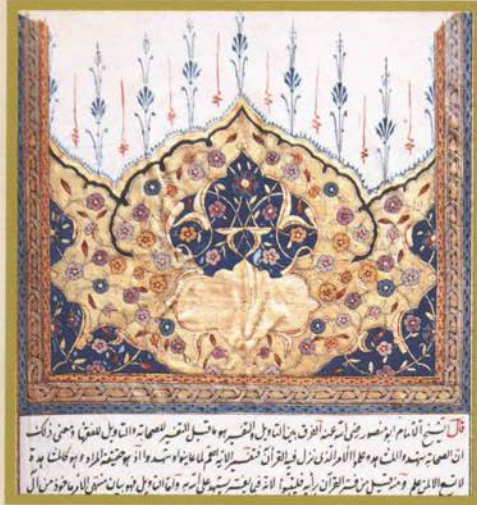 قال الشيخ الامام ابو منصور رضى الله عنه الفرق بين التأويل والتفسير هو ما قيل التفسير للصحابة والتأويل للفقهاء ومعنى ذلك
ان الصحابة شهدوا المشاهد وعلموا الامر الذى نزل فيه القرآن فتفسير الآية اهم لما عاينوا وشهدوا اذ هو حقيقة المراد وهو كالمشاهدة
لا تسمع الا من علم ومنه قيل من فسر القرآن برأيه فليتبوأ لانه فيما يفسر يشهد على الله به واما التأويل فهو بيان منتهى الامر مأخوذ من آل